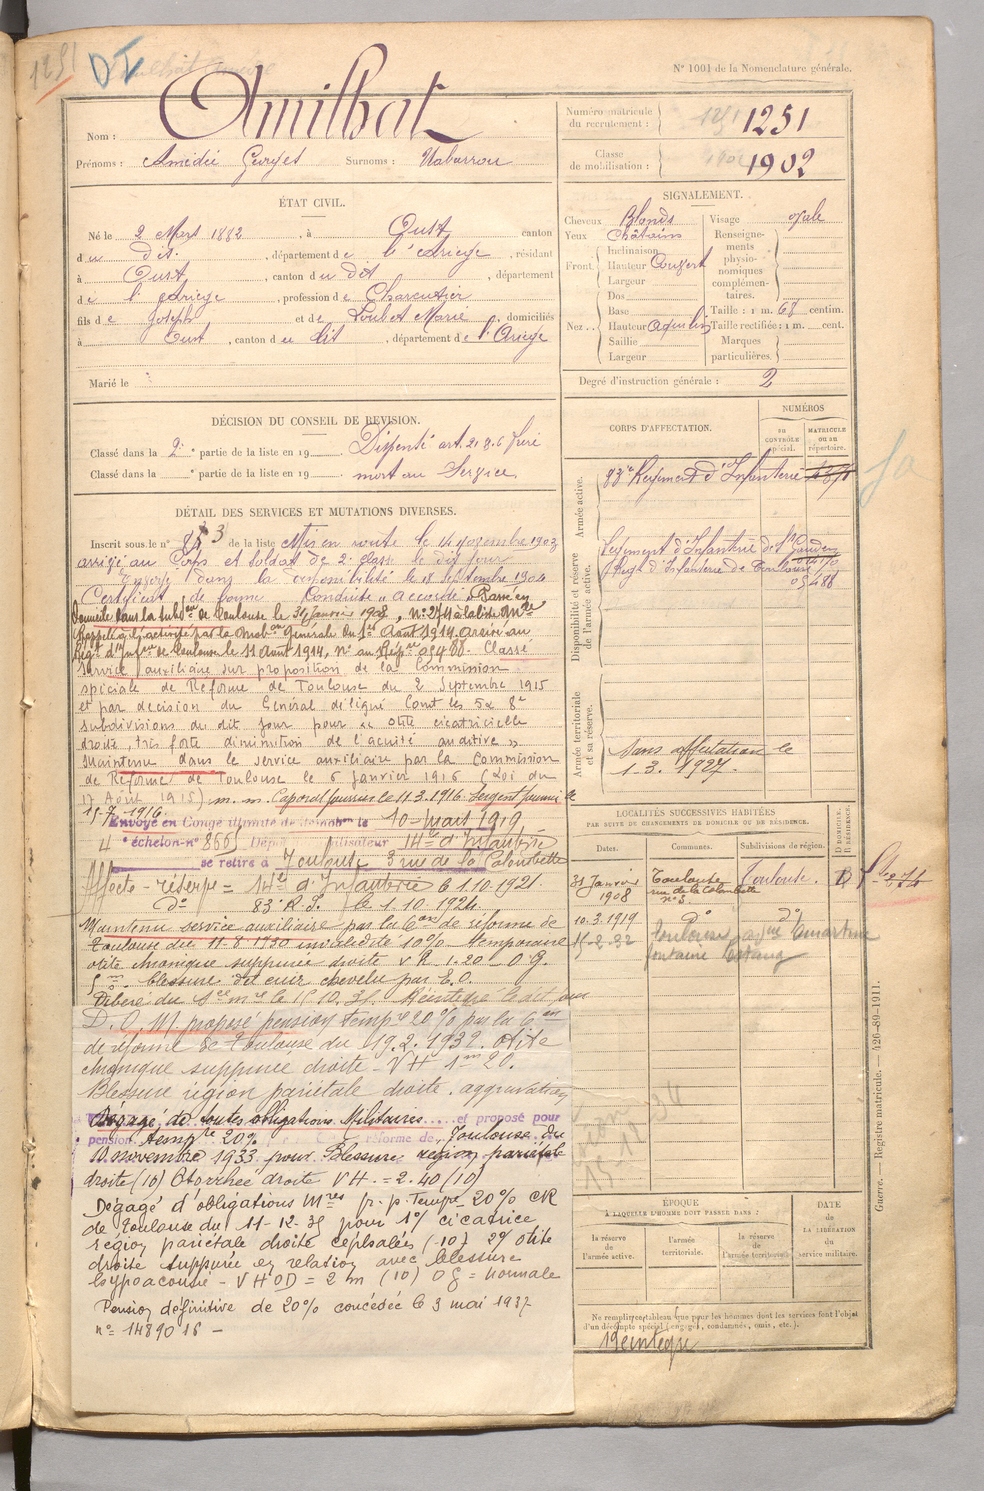 1251
N° 1001 de la Nomenclature générale.
Nom : Amilhat
Prénoms : Amédée Georges Surnoms : Nabarrou
Numéro matricule du recrutement : 1251
Classe de mobilisation : 1902
ÉTAT CIVIL.
Né le 2 Mars 1882, à Oust, canton
du dit, département de l'Ariège, résidant
à Oust, canton du dit, département
de l'Ariège, profession de Charcutier
fils de Joseph et de Loubet Marie, domiciliés
à Oust, canton du dit, département de l'Ariège
Marié le
SIGNALEMENT.
Cheveux Blonds
Yeux Châtains
Front. Inclinaison
Hauteur Couvert
Largeur
Nez.. Dos
Base
Hauteur Aquilin
Saillie
Largeur
Visage ovale
Renseignements physionomiques complémentaires.
Taille : 1 m. 68 centim.
Taille rectifiée : 1 m. cent.
Marques particulières.
Degré d'instruction générale : 2
DÉCISION DU CONSEIL DE REVISION.
Classé dans la 2e partie de la liste en 19 Dispensé art. 21 § 6 frère
Classé dans la e partie de la liste en 19 mort au Service
DÉTAIL DES SERVICES ET MUTATIONS DIVERSES.
Inscrit sous le n° de la liste Mis en route le 14 novembre 1903
arrivé au Corps et soldat de 2e classe le dit jour
Envoyé dans la disponibilité le 18 septembre 1904
Certificat de bonne Conduite "accordé" Passé en
domicile dans la subdon de Toulouse le 31 Janvier 1908, n° 274 à la liste
Rappelé à l'activité par la mobon Générale du 1er Août 1914. arrivé au
Régt d'Infrie de Toulouse le 11 Août 1914, n° au Rép 05488. Classé
service auxiliaire sur proposition de la Commission
spéciale de Réforme de Toulouse du 2 Septembre 1915
et par décision du Général délégué Comt les 5 & 8e
subdivisions du dit jour pour "otite cicatricielle
droite, très forte diminution de l'acuité auditive"
Maintenu dans le service auxiliaire par la Commission
de Réforme de Toulouse le 6 Janvier 1916 (Loi du
17 Août 1915) m. m. Caporal fourrier le 11.3.1916. Sergent fourrier le
15-7-1916.
Envoyé en Congé illimité de démobon le 10 mars 1919
4e échelon n° 866 Dépôt démobilisateur 14e d'Infanterie
se retire à Toulouse 3 rue de la Colombette
Affecté - réserve = 14e d'Infanterie le 1.10.1921.
d° 83e R.I. le 1.10.1924.
Maintenu service auxiliaire par la 6e Con de réforme de
Toulouse du 11-8-1930 invalidité 10% temporaire
otite chronique suppurée droite V H 1.20 - O.G.
5 m. blessure du cuir chevelu par E.O.
Libéré du Sce mre le 15.10.31. Réintégré le dit jour
D.O.M. proposé pension tempre 20% par la 6e Con
de réforme de Toulouse du 19.2.1932. otite
chronique suppurée droite - V H 1m 20.
Blessure région pariétale droite. aggravation
Dégagé de toutes obligations Militaires et proposé pour
pension tempre 20% réforme de Toulouse du
novembre 1933 pour Blessure région pariétale
droite (10) Otorrhée droite V H = 2.40 (10)
Dégagé d'obligations Mres p. p. Tempre 20% CR
de Toulouse du 11-12-35 pour 1°/ cicatrice
région pariétale droite céphalées (-10) 2°/ otite
droite suppurée en relation avec blessure
hypoacousie - V H O D = 2 m (10) O G = normale
Pension définitive de 20% concédée le 3 mai 1937
n° 1489016 -
CORPS D'AFFECTATION.
NUMÉROS
au CONTRÔLE spécial.
MATRICULE ou au répertoire.
Armée active.
83e Régiment d'Infanterie
Disponibilité et réserve de l'armée active.
Régiment d'Infanterie de St Gaudens
Régt d'Infanterie de Toulouse
05488
Armée territoriale et sa réserve.
Sans affectation le
1.3.1927.
LOCALITÉS SUCCESSIVES HABITÉES
PAR SUITE DE CHANGEMENTS DE DOMICILE OU DE RÉSIDENCE.
Dates. Communes. Subdivisions de région. D DOMICILE. R RÉSIDENCE.
31 Janvier 1908 Toulouse rue de la Colombette n° 3. Toulouse. D
10.3.1919 D° d°
15-2-22 Toulouse Lamartine
fontaine Lestang
ÉPOQUE
À LAQUELLE L'HOMME DOIT PASSER DANS :
la réserve de l'armée active.
l'armée territoriale.
la réserve de l'armée territoriale.
DATE de LA LIBÉRATION du service militaire.
Ne remplir ce tableau que pour les hommes dont les services font l'objet
d'un décompte spécial (engagés, condamnés, omis, etc.).
Réintégré
Guerre. — Registre matricule. — 426-89-1911.